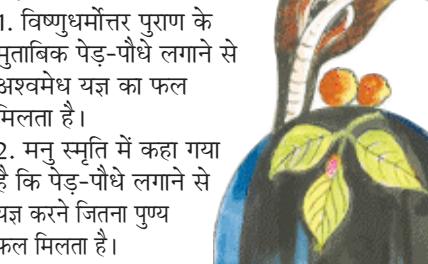 1. विष्णुधर्मोत्तर पुराण के
मुताबिक पेड़-पौधे लगाने से
अश्वमेध यज्ञ का फल
मिलता है।
2. मनु स्मृति में कहा गया
है कि पेड़-पौधे लगाने से
यज्ञ करने जितना पुण्य
फल मिलता है।